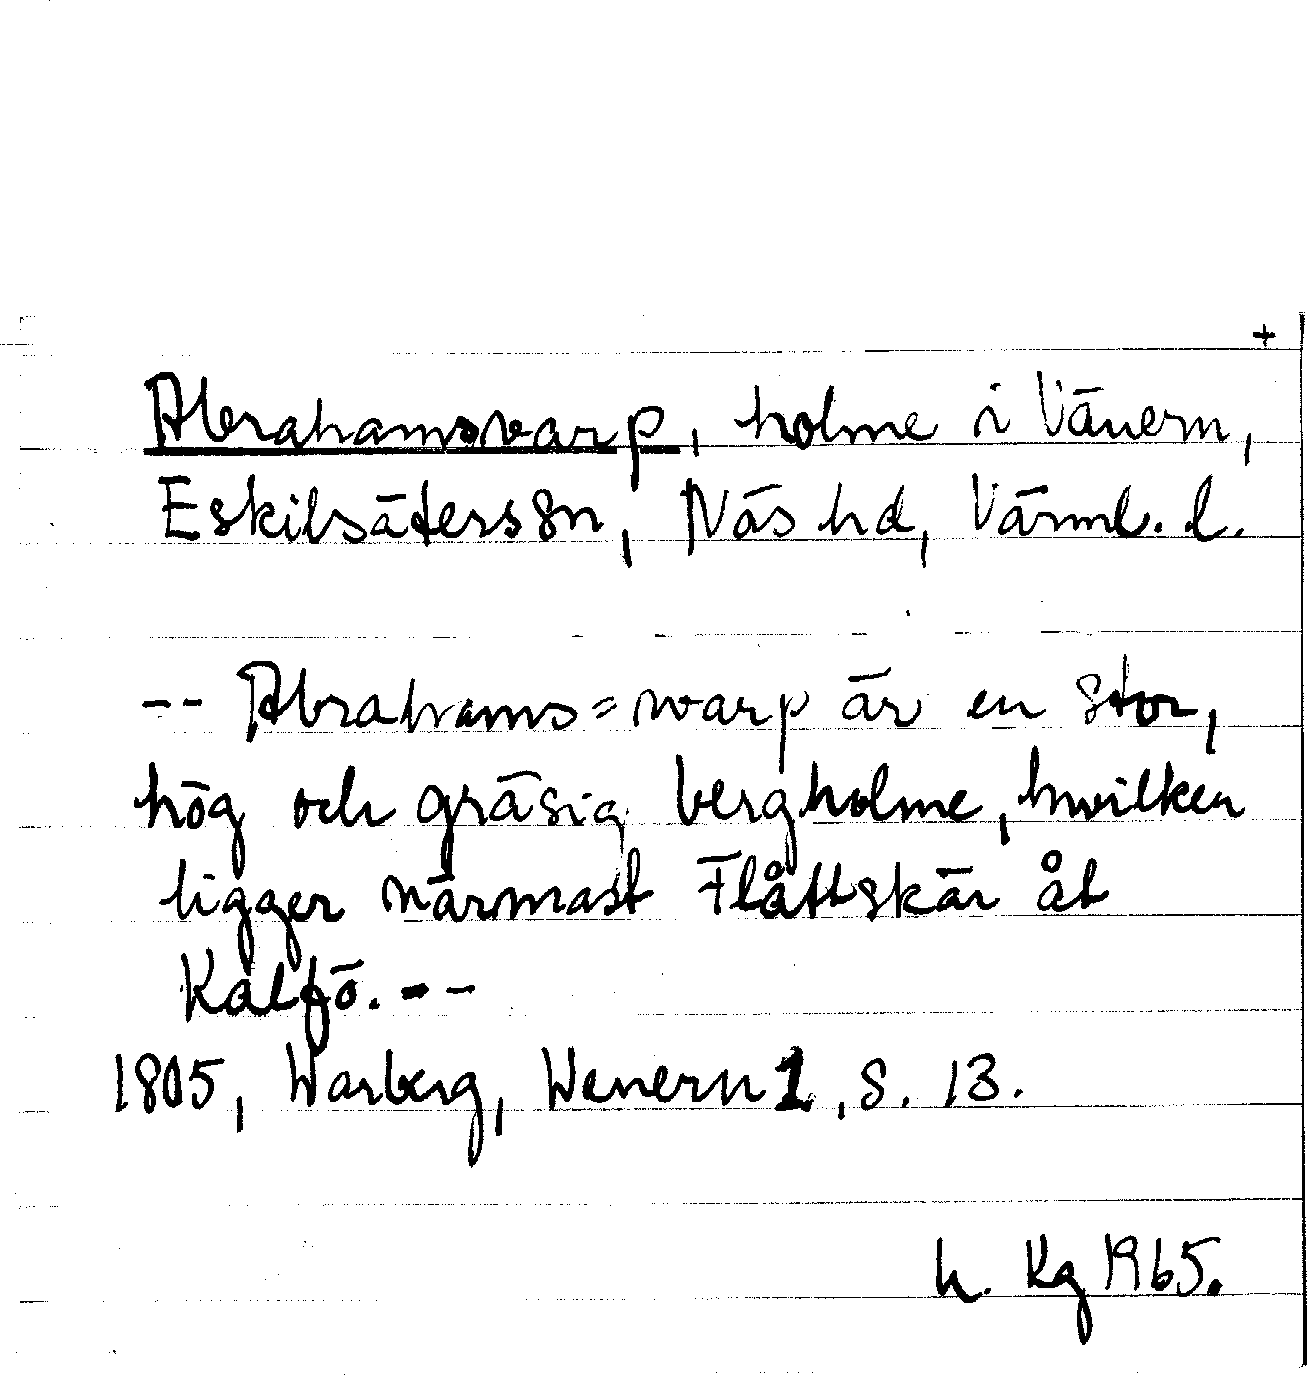 +
Abrahamsvarp, holme i Vänern,
Eskilsäters sn, Näs hd, Värml. l.
-- Abrahams=warp är en stor,
hög och gräsig bergholme, hwilken
ligger närmast Flåttskär åt
Kalfö. --
1805, Warberg, Wenern 1, s. 13.
h. Kg 1965.